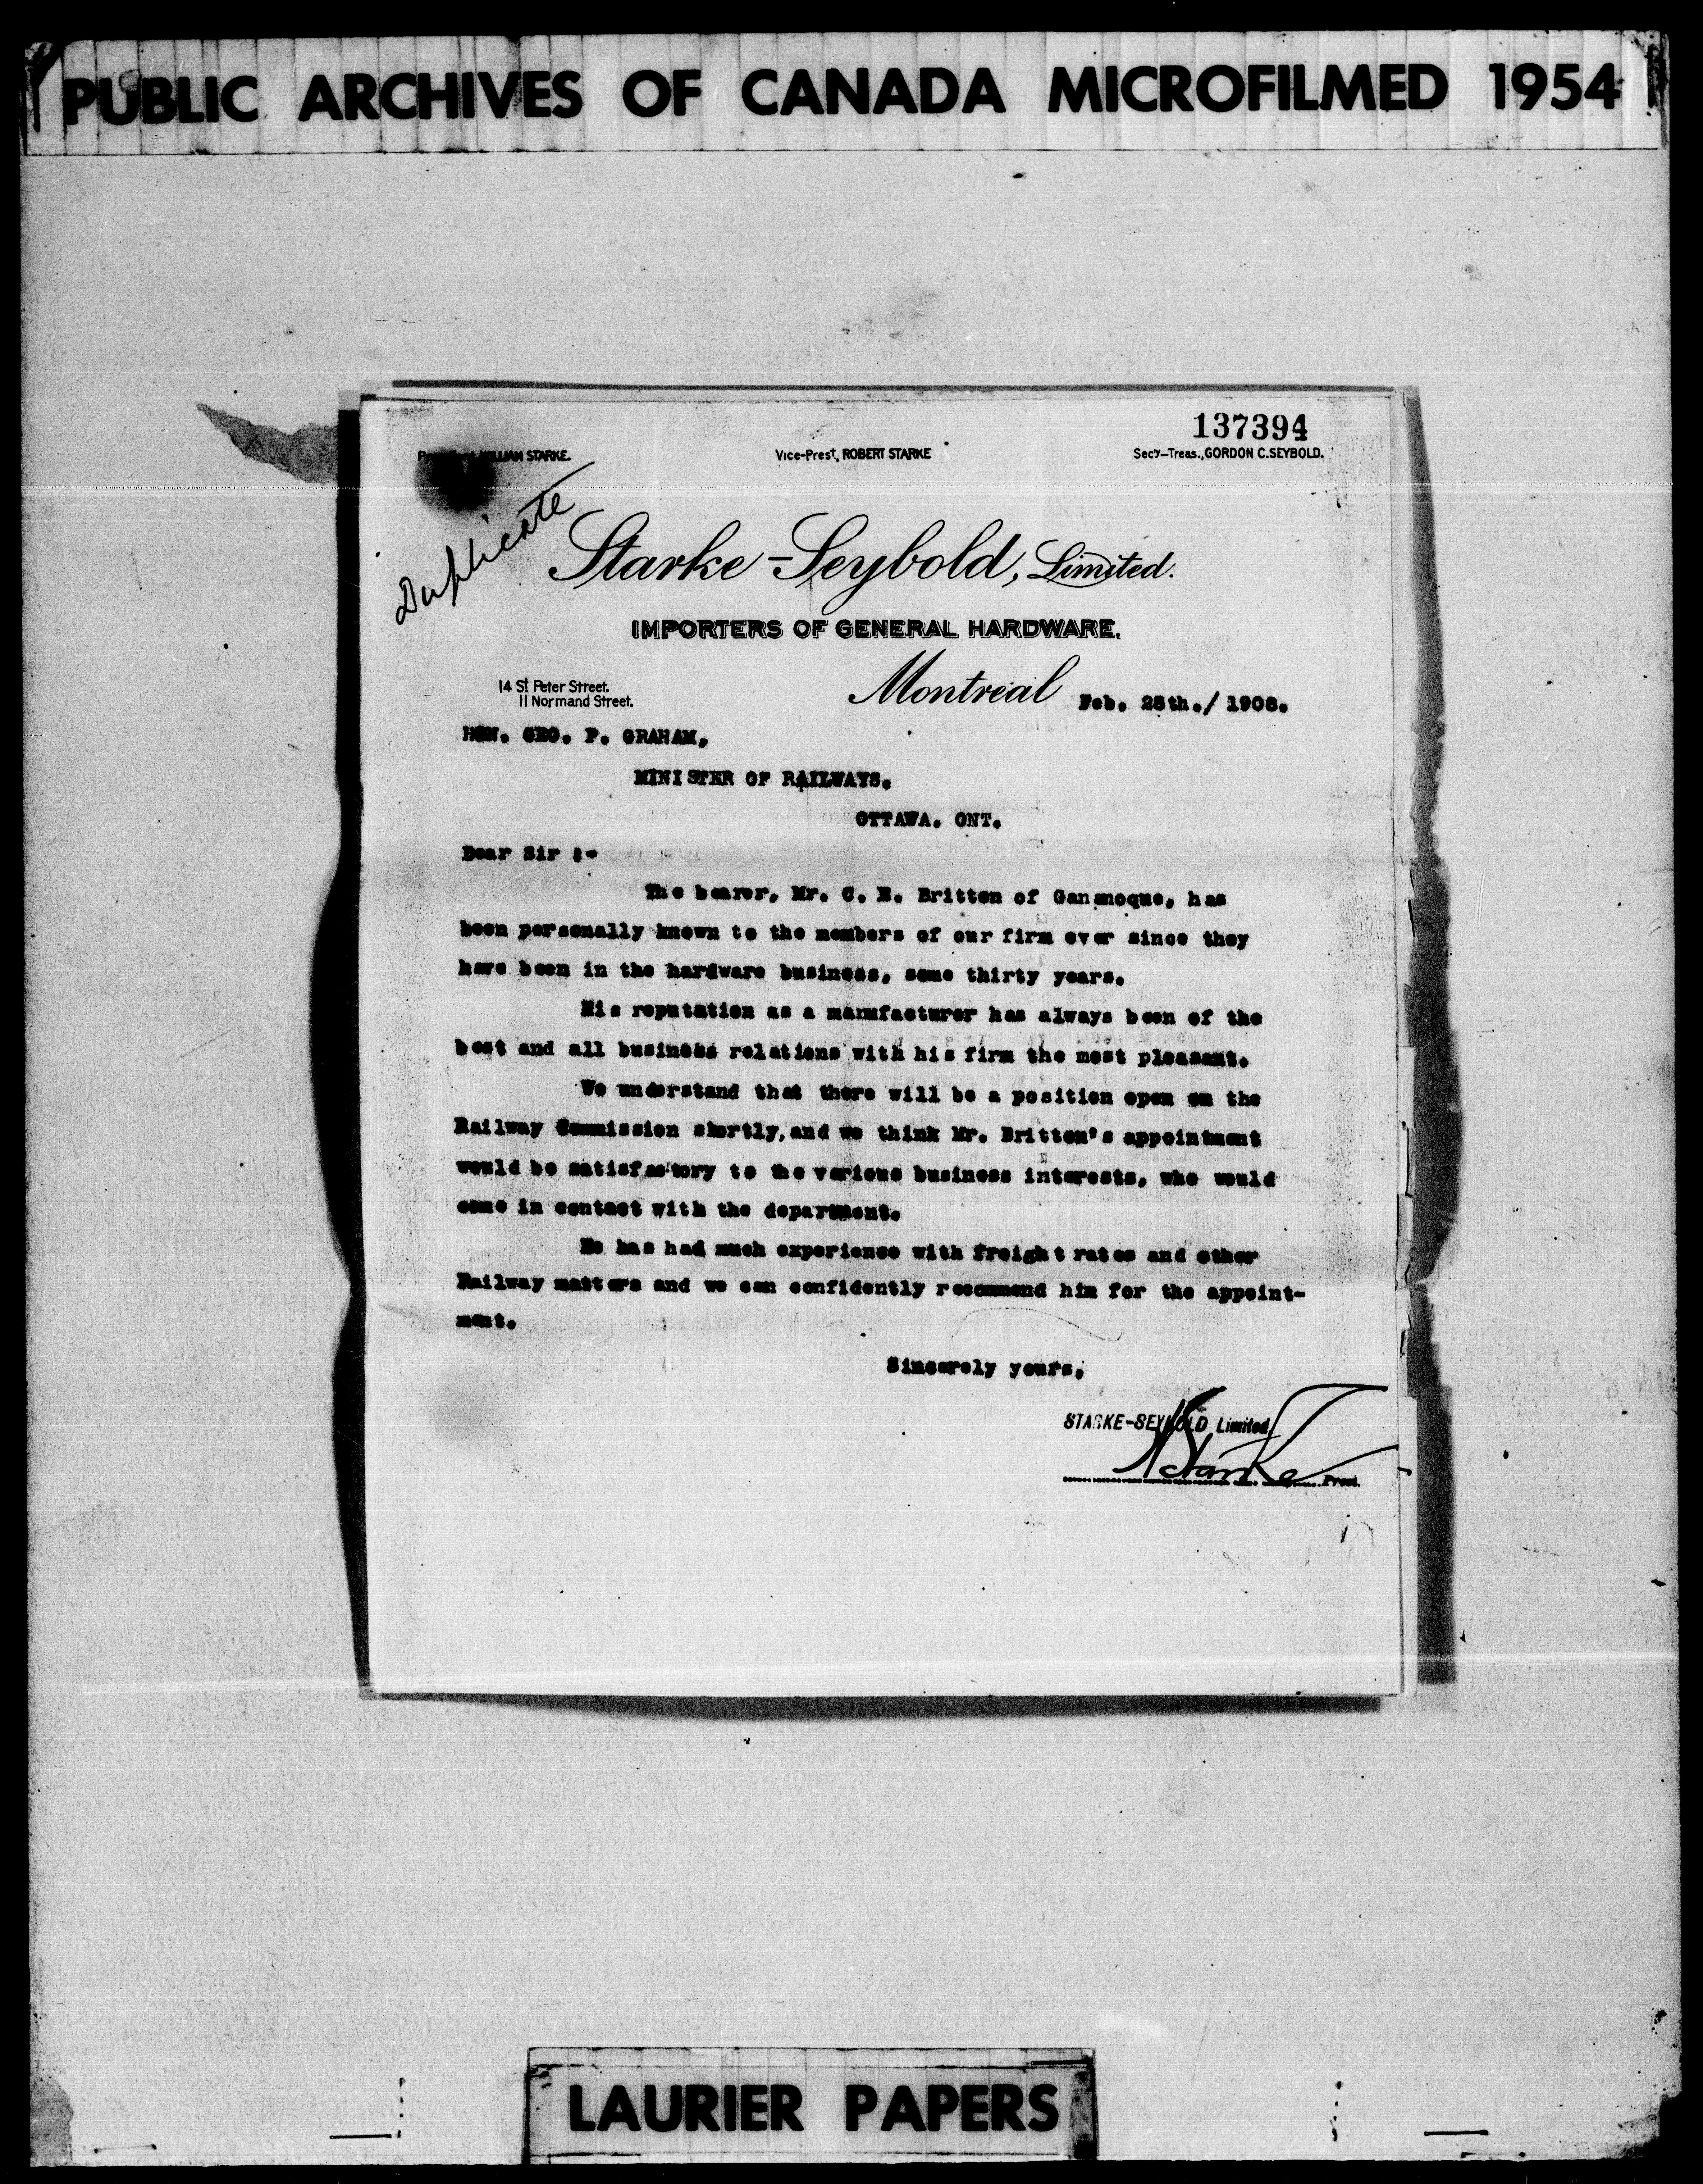 PUBLIC ARCHIVES OF CANADA MICROFILMED 1954
137394
WILLIAM STARKE.
Vice-Prest, ROBERT STARKE
Secy-Treas., GORDON C. SEYBOLD.
Duplicate
Starke-Seybold, Limited.
IMPORTERS OF GENERAL HARDWARE.
14 St Peter Street.
11 Normand Street.
Montreal Feb. 28th./ 1908.
HON. GEO. P. GRAHAM,
MINISTER OF RAILWAYS.
OTTAWA. ONT.
Dear Sir :-
The bearer, Mr. C. E. Britten of Gananoque, has
been personally known to the members of our firm ever since they
have been in the hardware business, some thirty years.
His reputation as a manufacturer has always been of the
best and all business relations with his firm the most pleasant.
We understand that there will be a position open on the
Railway Commission shortly, and we think Mr. Britten's appointment
would be satisfactory to the various business interests, who would
come in contact with the department.
He has had much experience with freight rates and other
Railway matters and we can confidently recommend him for the appoint-
ment.
Sincerely yours,
STARKE-SEYBOLD Limited
Starke Prest.
LAURIER PAPERS